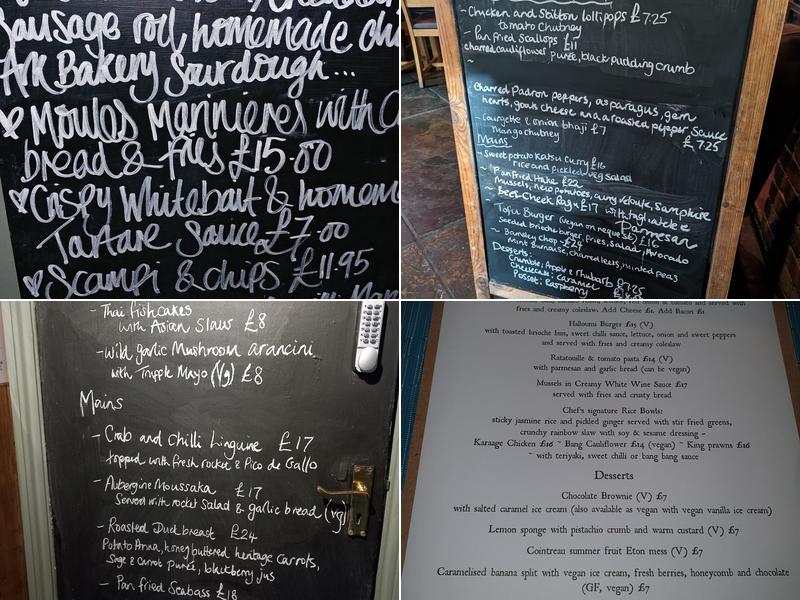 Sausage roll, homemade ch
Ark Bakery Sourdough...
Moules Marinieres with C
bread & fries £15.00
Crispy Whitebait & homem
Tartare Sauce £7.00
Scampi & chips £11.95
- Chicken and Stilton lollipops £7.25
tomato Chutney
- Pan fried Scallops £11
charred cauliflower puree, black pudding crumb
~
Charred Padron peppers, asparagus, gem
hearts, goats cheese and a roasted pepper sauce
£7.25
- Courgette & onion bhaji £7
Mango chutney
Mains
- Sweet potato Katsu Curry £16
rice and pickled veg salad
- Pan fried Hake £22
Mussels, new potatoes, curry veloute, samphire
~ Beef Cheek Ragu £17 with tagliatelle &
Parmesan
Tofu Burger (vegan on request) £16
Seeded brioche burger, fries, Salad, Avocado
~ Barnsley chop - £24
Mint Burnaise, charred leeks, minted peas
Desserts:
Crumble: Apple & rhubarb £7.25
Cheesecake: caramel
Posset: Raspberry
- Thai fishcakes
with Asian Slaw £8
- Wild garlic Mushroom arancini
with Truffle Mayo (Vg) £8
Mains
- Crab and Chilli Linguine £17
topped with fresh rocket & Pico de Gallo
- Aubergine Moussaka £17
Served with rocket Salad & garlic bread (vg)
- Roasted Duck breast £24
Potato Anna, honey buttered heritage carrots,
Sage & Carrot puree, blackberry jus
- Pan fried Seabass £18
& tomato and served with
fries and creamy coleslaw. Add Cheese £1. Add Bacon £1
Halloumi Burger £15 (V)
with toasted brioche bun, sweet chilli sauce, lettuce, onion and sweet peppers
and served with fries and creamy coleslaw
Ratatouille & tomato pasta £14 (V)
with parmesan and garlic bread (can be vegan)
Mussels in Creamy White Wine Sauce £17
served with fries and crusty bread
Chef's signature Rice Bowls:
sticky jasmine rice and pickled ginger served with stir fried greens,
crunchy rainbow slaw with soy & sesame dressing ~
Karaage Chicken £16 ~ Bang Cauliflower £14 (vegan) ~ King prawns £16
~ with teriyaki, sweet chilli or bang bang sauce
Desserts
Chocolate Brownie (V) £7
with salted caramel ice cream (also available as vegan with vegan vanilla ice cream)
Lemon sponge with pistachio crumb and warm custard (V) £7
Cointreau summer fruit Eton mess (V) £7
Caramelised banana split with vegan ice cream, fresh berries, honeycomb and chocolate
(GF, vegan) £7